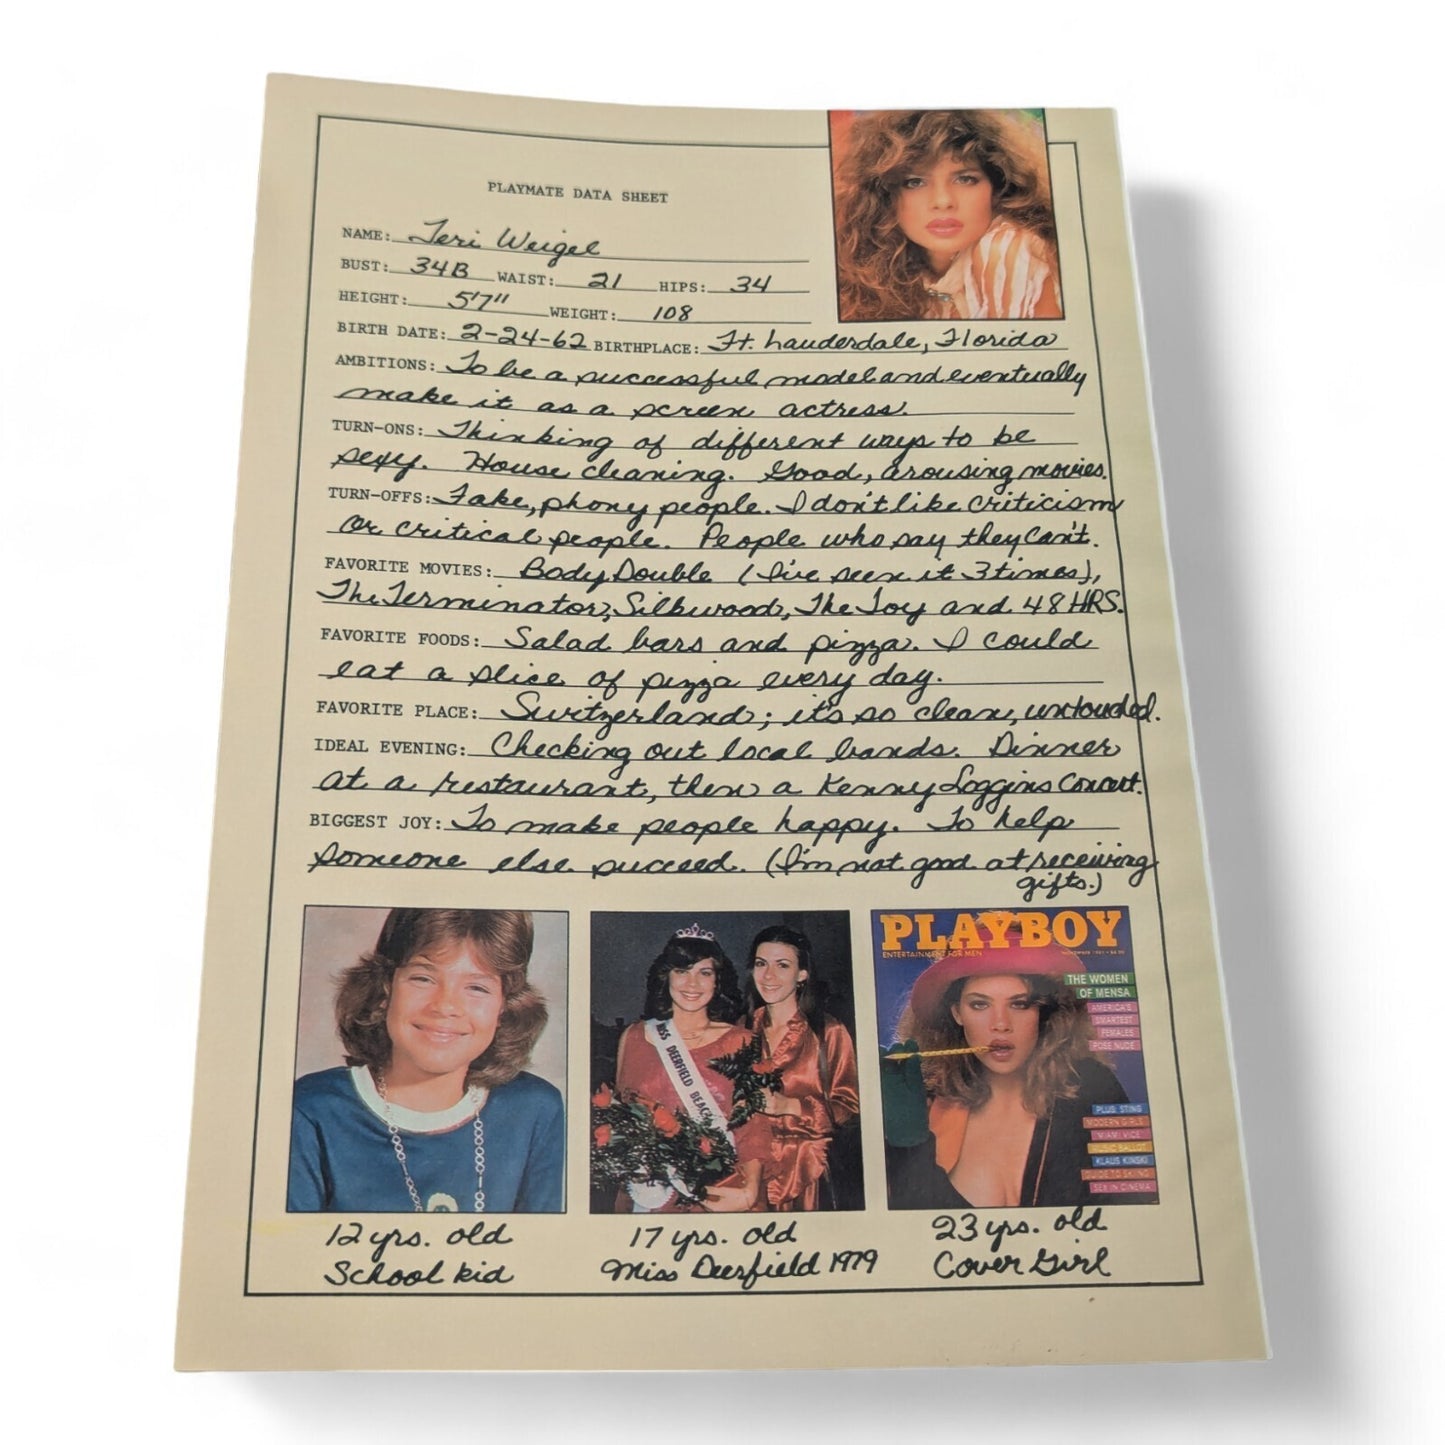 PLAYMATE DATA SHEET
NAME: Teri Weigel
BUST: 34B WAIST: 21 HIPS: 34
HEIGHT: 5'7" WEIGHT: 108
BIRTH DATE: 2-24-62 BIRTHPLACE: Ft. Lauderdale, Florida
AMBITIONS: To be a successful model and eventually
make it as a screen actress.
TURN-ONS: Thinking of different ways to be
sexy. House cleaning. Good, arousing movies.
TURN-OFFS: Fake, phony people. I don't like criticism
or critical people. People who say they can't.
FAVORITE MOVIES: Body Double (I've seen it 3 times),
The Terminator, Silkwood, The Toy and 48 HRS.
FAVORITE FOODS: Salad bars and pizza. I could
eat a slice of pizza every day.
FAVORITE PLACE: Switzerland; it's so clean, untouched.
IDEAL EVENING: Checking out local bands. Dinner
at a restaurant, then a Kenny Loggins concert.
BIGGEST JOY: To make people happy. To help
someone else succeed. (I'm not good at receiving
gifts.)
MISS DEERFIELD BEACH
PLAYBOY
ENTERTAINMENT FOR MEN
THE WOMEN
OF MENSA
AMERICA'S
SMARTEST
FEMALES
POSE NUDE
PLUS STING
MODERN GIRLS
MIAMI VICE
MUSIC BALLOT
KLAUS KINSKI
GUIDE TO SKIING
SEX IN CINEMA
12 yrs. old
School kid
17 yrs. old
Miss Deerfield 1979
23 yrs. old
Cover Girl